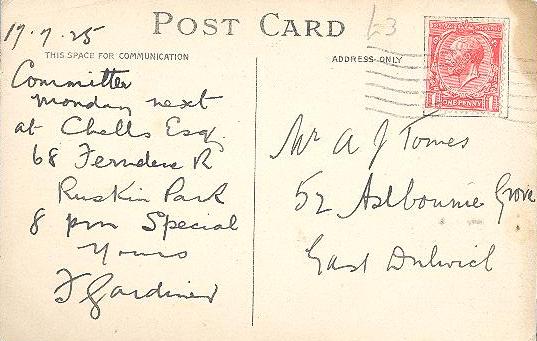 17.7.25
POST CARD
£3
THIS SPACE FOR COMMUNICATION
Committee
monday next
at Chells Esq.
68 Ferndene R
Ruskin Park
8 pm Special
Yours
F Gardiner
ADDRESS ONLY
ONE PENNY
Mr A J Tomes
52 Ashbourne Grove
East Dulwich